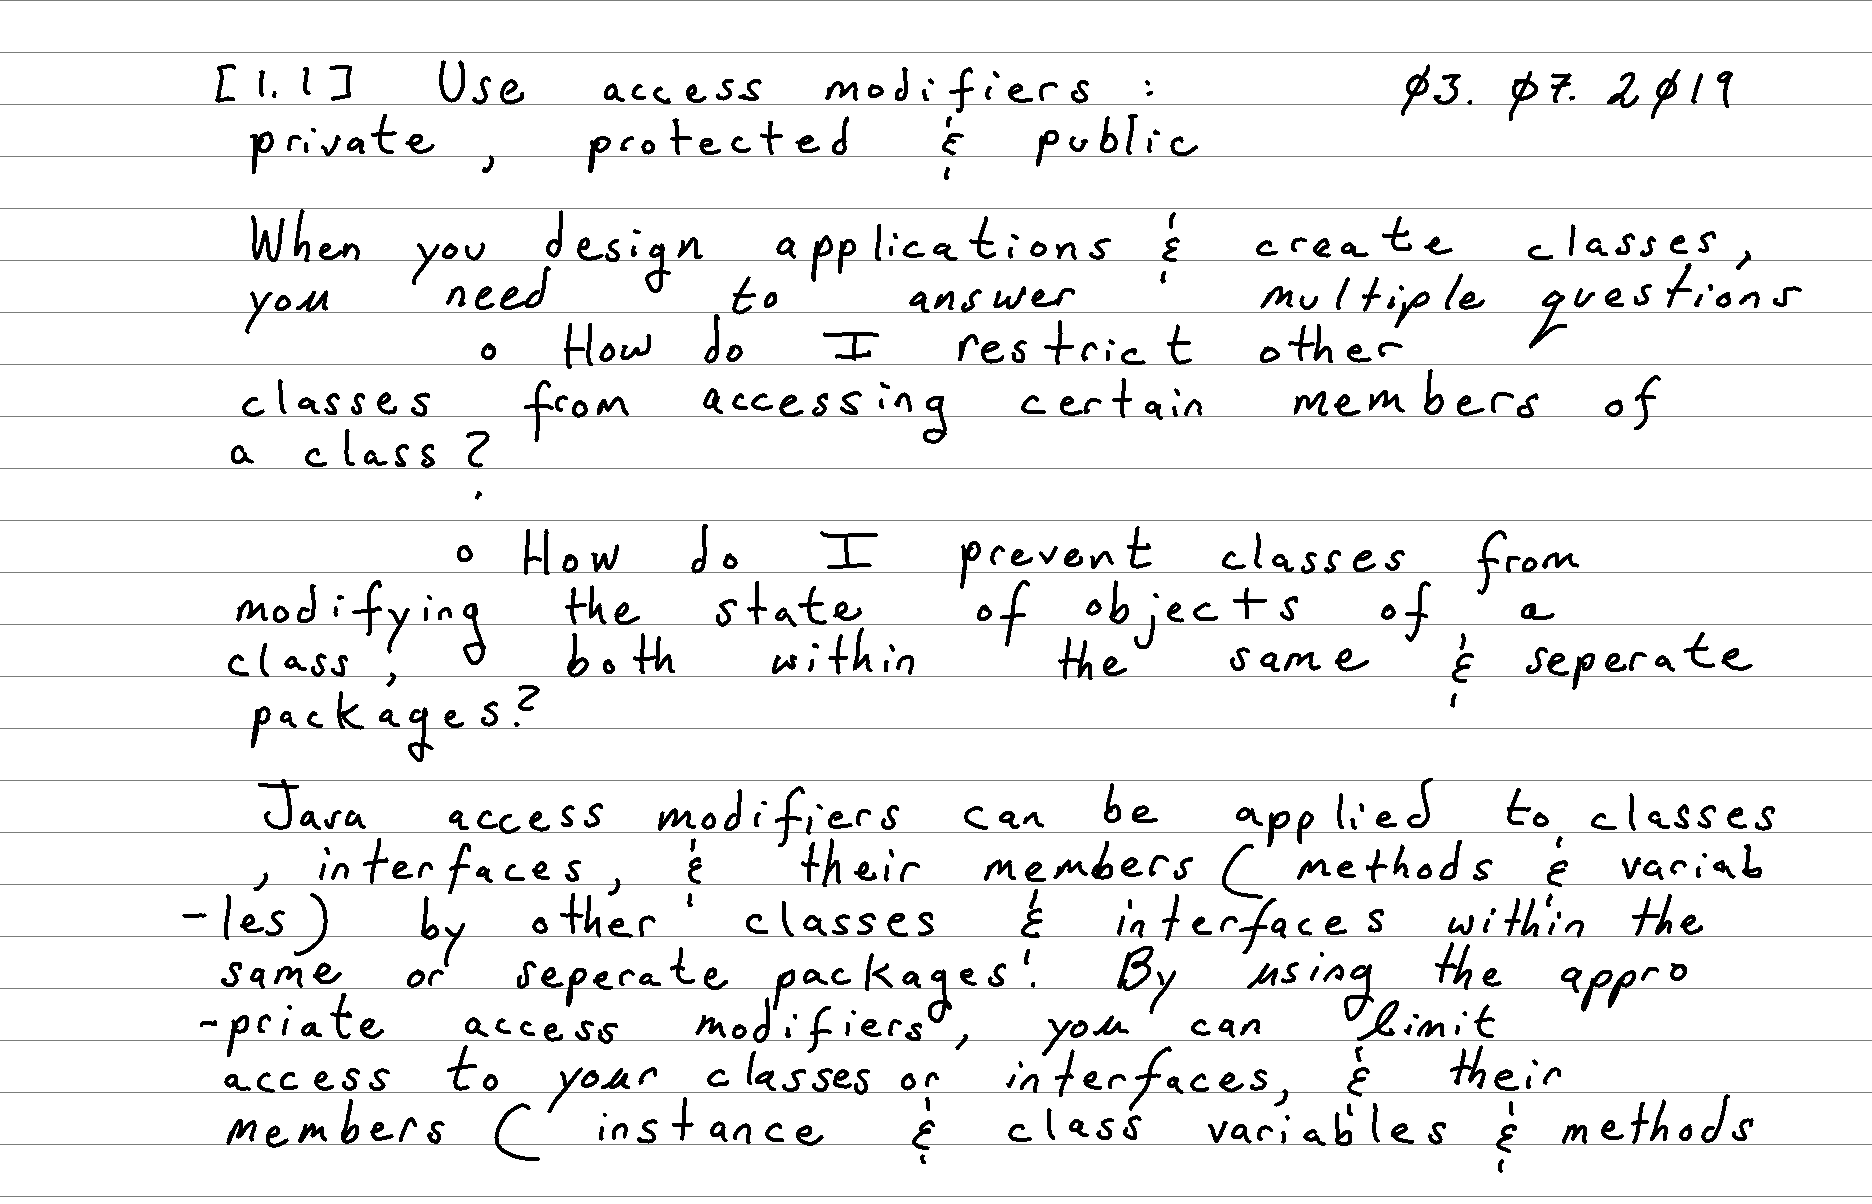 [1.1] Use access modifiers : ø3. ø7. 2ø19
private, protected & public
When you design applications & create classes,
you need to answer multiple questions
o How do I restrict other
classes from accessing certain members of
a class?
o How do I prevent classes from
modifying the state of objects of a
class, both within the same & seperate
packages?
Java access modifiers can be applied to classes
, interfaces, & their members ( methods & variab
-les) by other classes & interfaces within the
same or seperate packages. By using the appro
-priate access modifiers, you can limit
access to your classes or interfaces, & their
members ( instance & class variables & methods